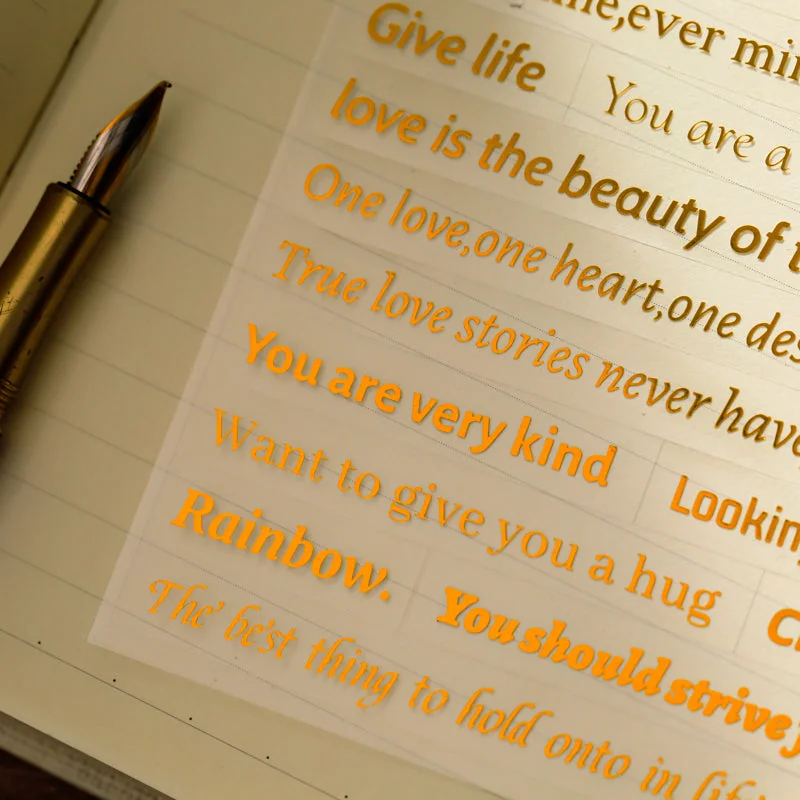 ever
Give life
You are a
love is the beauty of
One love,one heart,one
True love stories never
You are very kind
Want to give you a hug
Rainbow.
You should strive
The best thing to hold onto in